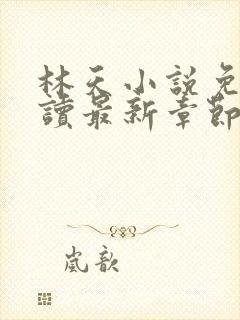 林天小說免
讀最新章節
嵐歆